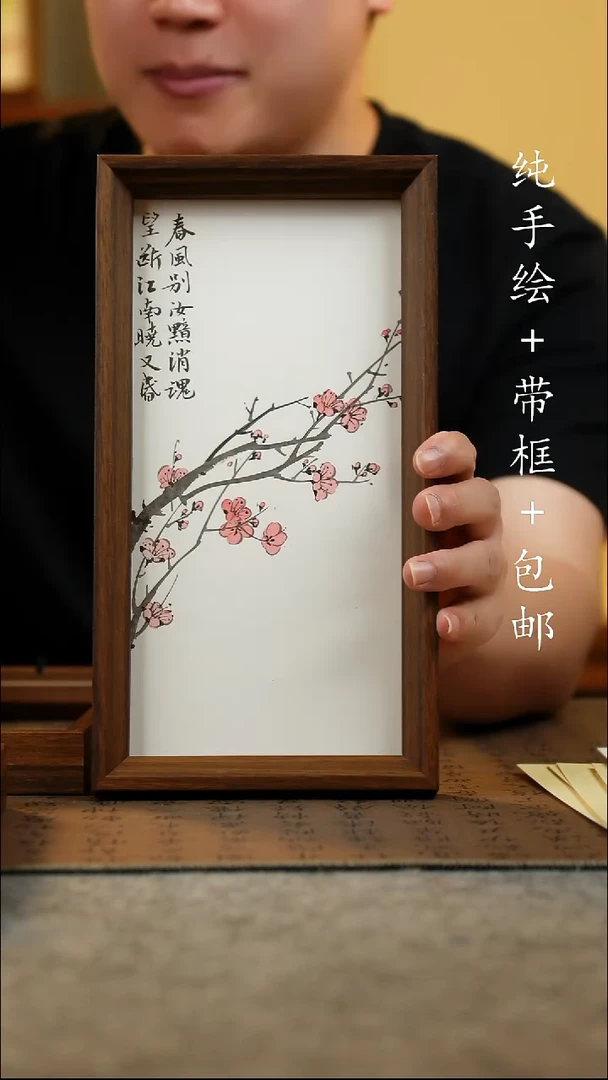 春風別汝黯消魂
望斷江南曉又昏
纯手绘+带框+包邮